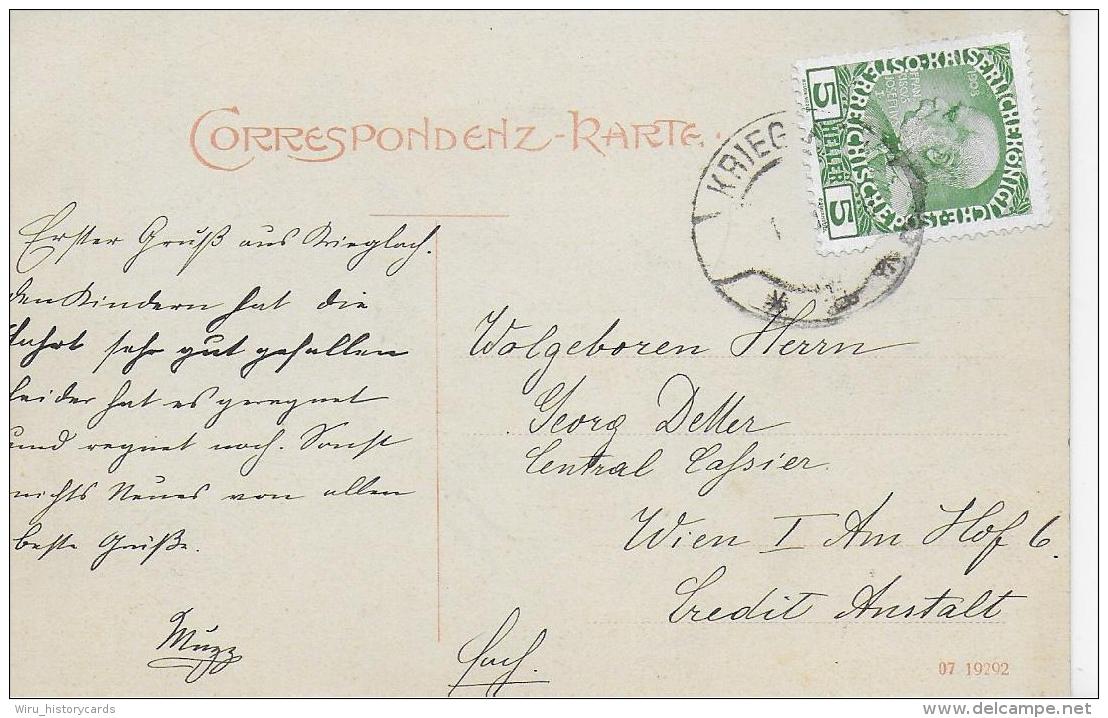 CORRESPONDENZ-KARTE.
Erster Gruß aus Krieglach.
den Kindern hat die
Fahrt sehr gut gefallen
leider hat es geregnet
und regnet noch. Sonst
nichts Neues von allen
beste Grüße.
Muzz
KRIEG
KAISERLICHE KÖNIGLICHE ÖSTERREICHISCHE POST
FRANCISCUS JOSEPH I
1908
5 HELLER 5
Wolgeboren Herrn
Georg
Central Cassier
Wien I Am Hof 6.
Credit Anstalt
07 19292
Wiru_historycards
delcampe.net